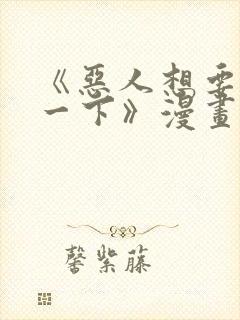 《惡人想要
一下》漫畫
馨紫藤